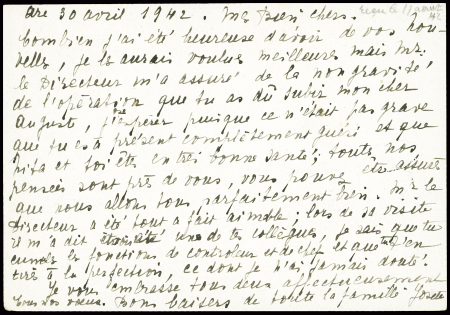 are 30 avril 1942. Mes bien chers.
Combien j'ai été heureuse d'avoir de vos nou-
velles, je les aurais voulues meilleures mais Mr.
le Directeur m'a assuré de la non gravité
de l'opération que tu as dû subir mon cher
Auguste, j'espère puisque ce n'était pas grave
que tu es à présent complètement guéri et que
et toi êtes en très bonne santé; toutes nos
pensées sont près de vous, vous pouvez être assurés
que nous allons tous parfaitement bien. Mr le
Directeur a été tout à fait aimable; lors de sa visite
il m'a dit une de tes collègues, je sais que tu
cumules les fonctions de controleur et de chef et que tu t'en
tires à la perfection, ce dont je n'ai jamais douté.
Je vous embrasse tous deux affectueusement
tous nos voeux. Bons baisers de toute la famille Josette